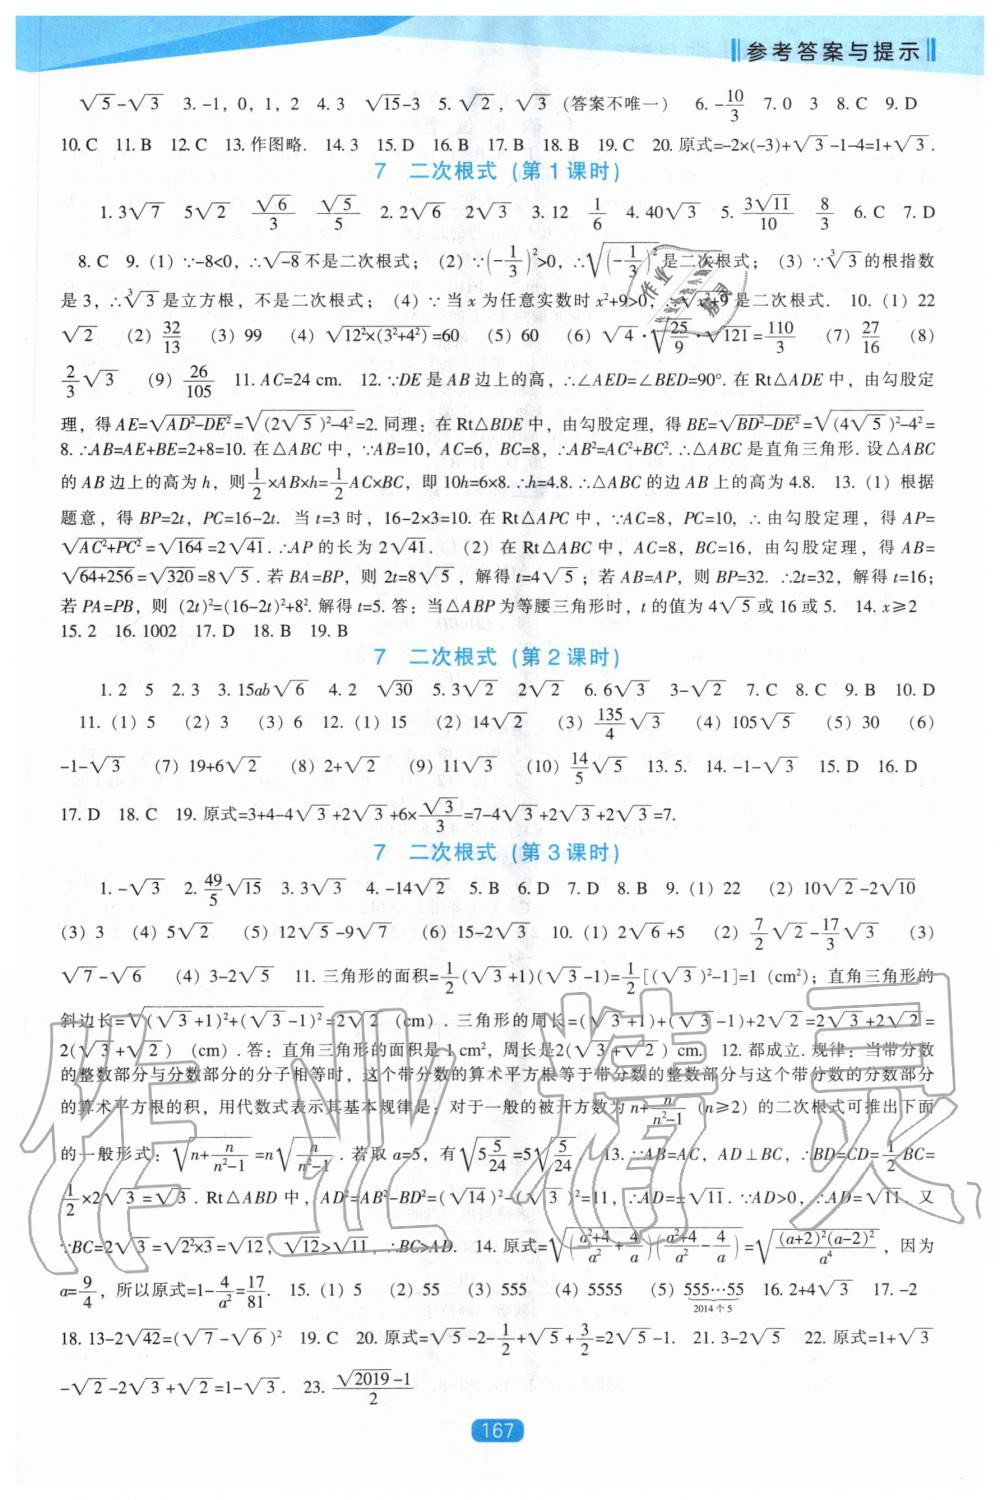 参考答案与提示
√5-√3 3. -1, 0, 1, 2 4. 3 √15-3 5. √2, √3 (答案不唯一) 6. -10/3 7. 0 3 8. C 9. D
10. C 11. B 12. C 13. 作图略. 14. 3 15. D 16. B 17. B 18. B 19. C 20. 原式=-2×(-3)+√3-1-4=1+√3.
7 二次根式(第1课时)
1. 3√7 5√2 √6/3 √5/5 2. 2√6 2√3 3. 12 1/6 4. 40√3 5. 3√11/10 8/3 6. C 7. D
8. C 9. (1) ∵-8<0, ∴√-8不是二次根式; (2) ∵(-1/3)²>0, ∴√(-1/3)²是二次根式; (3) ∵³√3的根指数
是3, ∴³√3是立方根, 不是二次根式; (4) ∵当x为任意实数时x²+9>0, ∴√x²+9是二次根式. 10. (1) 22
√2 (2) 32/13 (3) 99 (4) √12²×(3²+4²)=60 (5) 60 (6) √4·√25/9·√121=110/3 (7) 27/16 (8)
2/3√3 (9) 26/105 11. AC=24 cm. 12. ∵DE是AB边上的高, ∴∠AED=∠BED=90°. 在Rt△ADE中, 由勾股定
理, 得AE=√AD²-DE²=√(2√5)²-4²=2. 同理: 在Rt△BDE中, 由勾股定理, 得BE=√BD²-DE²=√(4√5)²-4²=
8. ∴AB=AE+BE=2+8=10. 在△ABC中, ∵AB=10, AC=6, BC=8, ∴AB²=AC²+BC². ∴△ABC是直角三角形. 设△ABC
的AB边上的高为h, 则1/2×AB×h=1/2AC×BC, 即10h=6×8. ∴h=4.8. ∴△ABC的边AB上的高为4.8. 13. (1) 根据
题意, 得BP=2t, PC=16-2t. 当t=3时, 16-2×3=10. 在Rt△APC中, ∵AC=8, PC=10, ∴由勾股定理, 得AP=
√AC²+PC²=√164=2√41. ∴AP的长为2√41. (2) 在Rt△ABC中, AC=8, BC=16, 由勾股定理, 得AB=
√64+256=√320=8√5. 若BA=BP, 则2t=8√5, 解得t=4√5; 若AB=AP, 则BP=32. ∴2t=32, 解得t=16;
若PA=PB, 则(2t)²=(16-2t)²+8². 解得t=5. 答: 当△ABP为等腰三角形时, t的值为4√5或16或5. 14. x≥2
15. 2 16. 1002 17. D 18. B 19. B
7 二次根式(第2课时)
1. 2 5 2. 3 3. 15ab√6 4. 2 √30 5. 3√2 2√2 6. 6√3 3-√2 7. C 8. C 9. B 10. D
11. (1) 5 (2) 3 (3) 6 12. (1) 15 (2) 14√2 (3) 135/4√3 (4) 105√5 (5) 30 (6)
-1-√3 (7) 19+6√2 (8) 2+√2 (9) 11√3 (10) 14/5√5 13. 5. 14. -1-√3 15. D 16. D
17. D 18. C 19. 原式=3+4-4√3+2√3+6×√3/3=7-4√3+2√3+2√3=7.
7 二次根式(第3课时)
1. -√3 2. 49/5√15 3. 3√3 4. -14√2 5. B 6. D 7. D 8. B 9. (1) 22 (2) 10√2-2√10
(3) 3 (4) 5√2 (5) 12√5-9√7 (6) 15-2√3 10. (1) 2√6+5 (2) 7/2√2-17/3√3 (3)
√7-√6 (4) 3-2√5 11. 三角形的面积=1/2(√3+1)(√3-1)=1/2[(√3)²-1]=1 (cm²); 直角三角形的
斜边长=√(√3+1)²+(√3-1)²=2√2 (cm). 三角形的周长=(√3+1)+(√3-1)+2√2=2√3+2√2=
2(√3+√2) (cm). 答: 直角三角形的面积是1 cm², 周长是2(√3+√2) cm. 12. 都成立. 规律: 当带分数
的整数部分与分数部分的分子相等时, 这个带分数的算术平方根等于带分数的整数部分与这个带分数的分数部分
的算术平方根的积, 用代数式表示其基本规律是: 对于一般的被开方数为n+n/n²-1 (n≥2) 的二次根式可推出下面
的一般形式: √n+n/n²-1=n√n/n²-1. 若取a=5, 有√5 5/24=5√5/24. 13. ∵AB=AC, AD⊥BC, ∴BD=CD=1/2BC=
1/2×2√3=√3. Rt△ABD中, AD²=AB²-BD²=(√14)²-(√3)²=11, ∴AD=±√11. ∵AD>0, ∴AD=√11. 又
∵BC=2√3=√2²×3=√12, √12>√11, ∴BC>AD. 14. 原式=√(a²+4/a²+4/a)(a²+4/a²-4/a)=√(a+2)²(a-2)²/a⁴, 因为
a=9/4, 所以原式=1-4/a²=17/81. 15. (1) 5 (2) 55 (3) 555 (4) 5555 (5) 555…55 2014个5 16. 2+4√3 17. -2
18. 13-2√42=(√7-√6)² 19. C 20. 原式=√5-2-1/2+√5+3/2=2√5-1. 21. 3-2√5 22. 原式=1+√3
-√2-2√3+√2=1-√3. 23. √2019-1/2
167
作业精灵
作业精灵